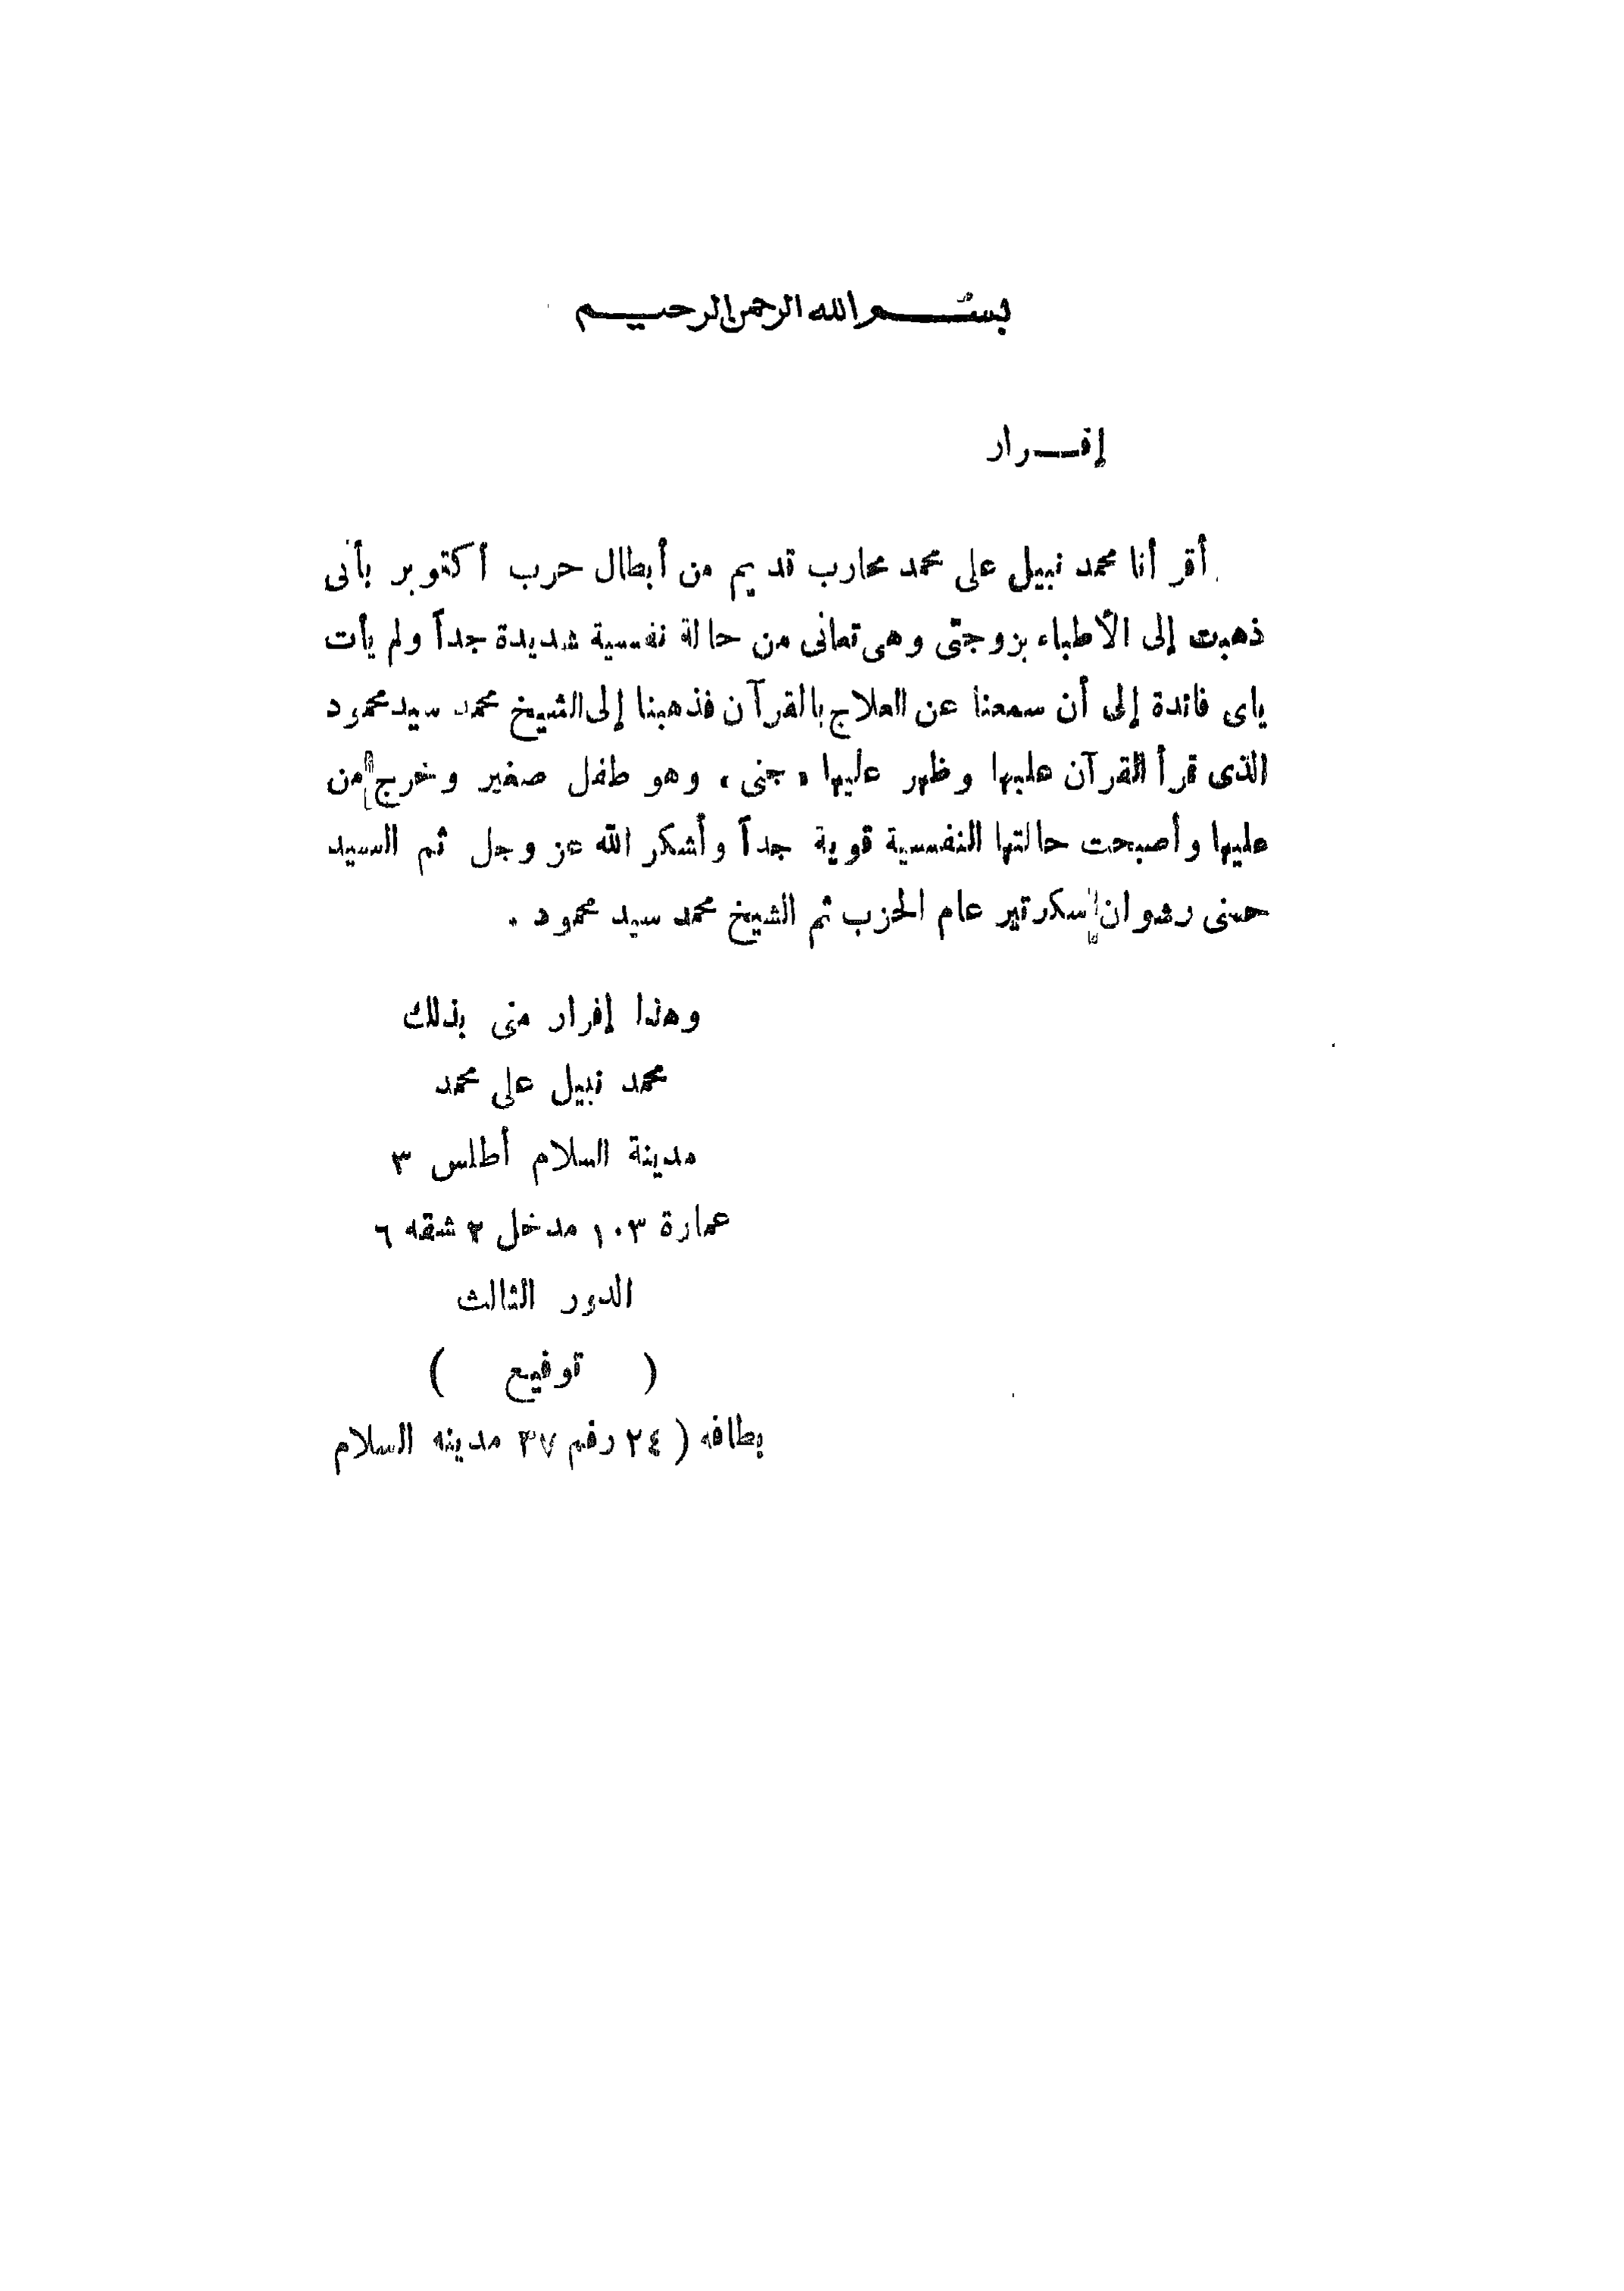 بسم الله الرحمن الرحيم
إقرار
أقر أنا محمد نبيل على محمد محارب قديم من أبطال حرب أكتوبر بأنى
ذهبت إلى الأطباء بزوجتى وهى تعانى من حالة نفسية شديدة جداً ولم يأت
ياى فائدة إلى أن سمعنا عن العلاج بالقرآن فذهبنا إلى الشيخ محمد سيد محمود
الذى قرأ القرآن عليها وظهر عليها « جنى » وهو طفل صغير وخرج من
عليها وأصبحت حالتها النفسية قوية جداً وأشكر الله عز وجل ثم السيد
حسنى رضوان سكرتير عام الحزب ثم الشيخ محمد سيد محمود .
وهذا إقرار منى بذلك
محمد نبيل على محمد
مدينة السلام أطلس ٣
عمارة ١٠٣ مدخل ٢ شقه ٦
الدور الثالث
( توقيع )
بطاقه ( ٢٤ رقم ٣٧ مدينه السلام